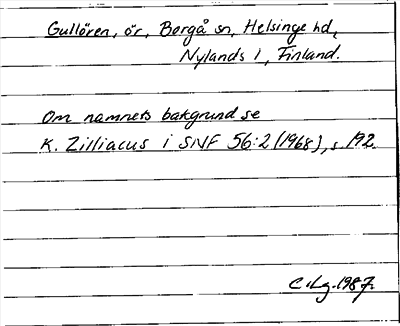 Gullören, ör, Borgå sn, Helsinge hd,
Nylands l, Finland.
Om namnets bakgrund se
K. Zilliacus i SNF 56:2 (1968), s. 192.
C. Lg. 1987.